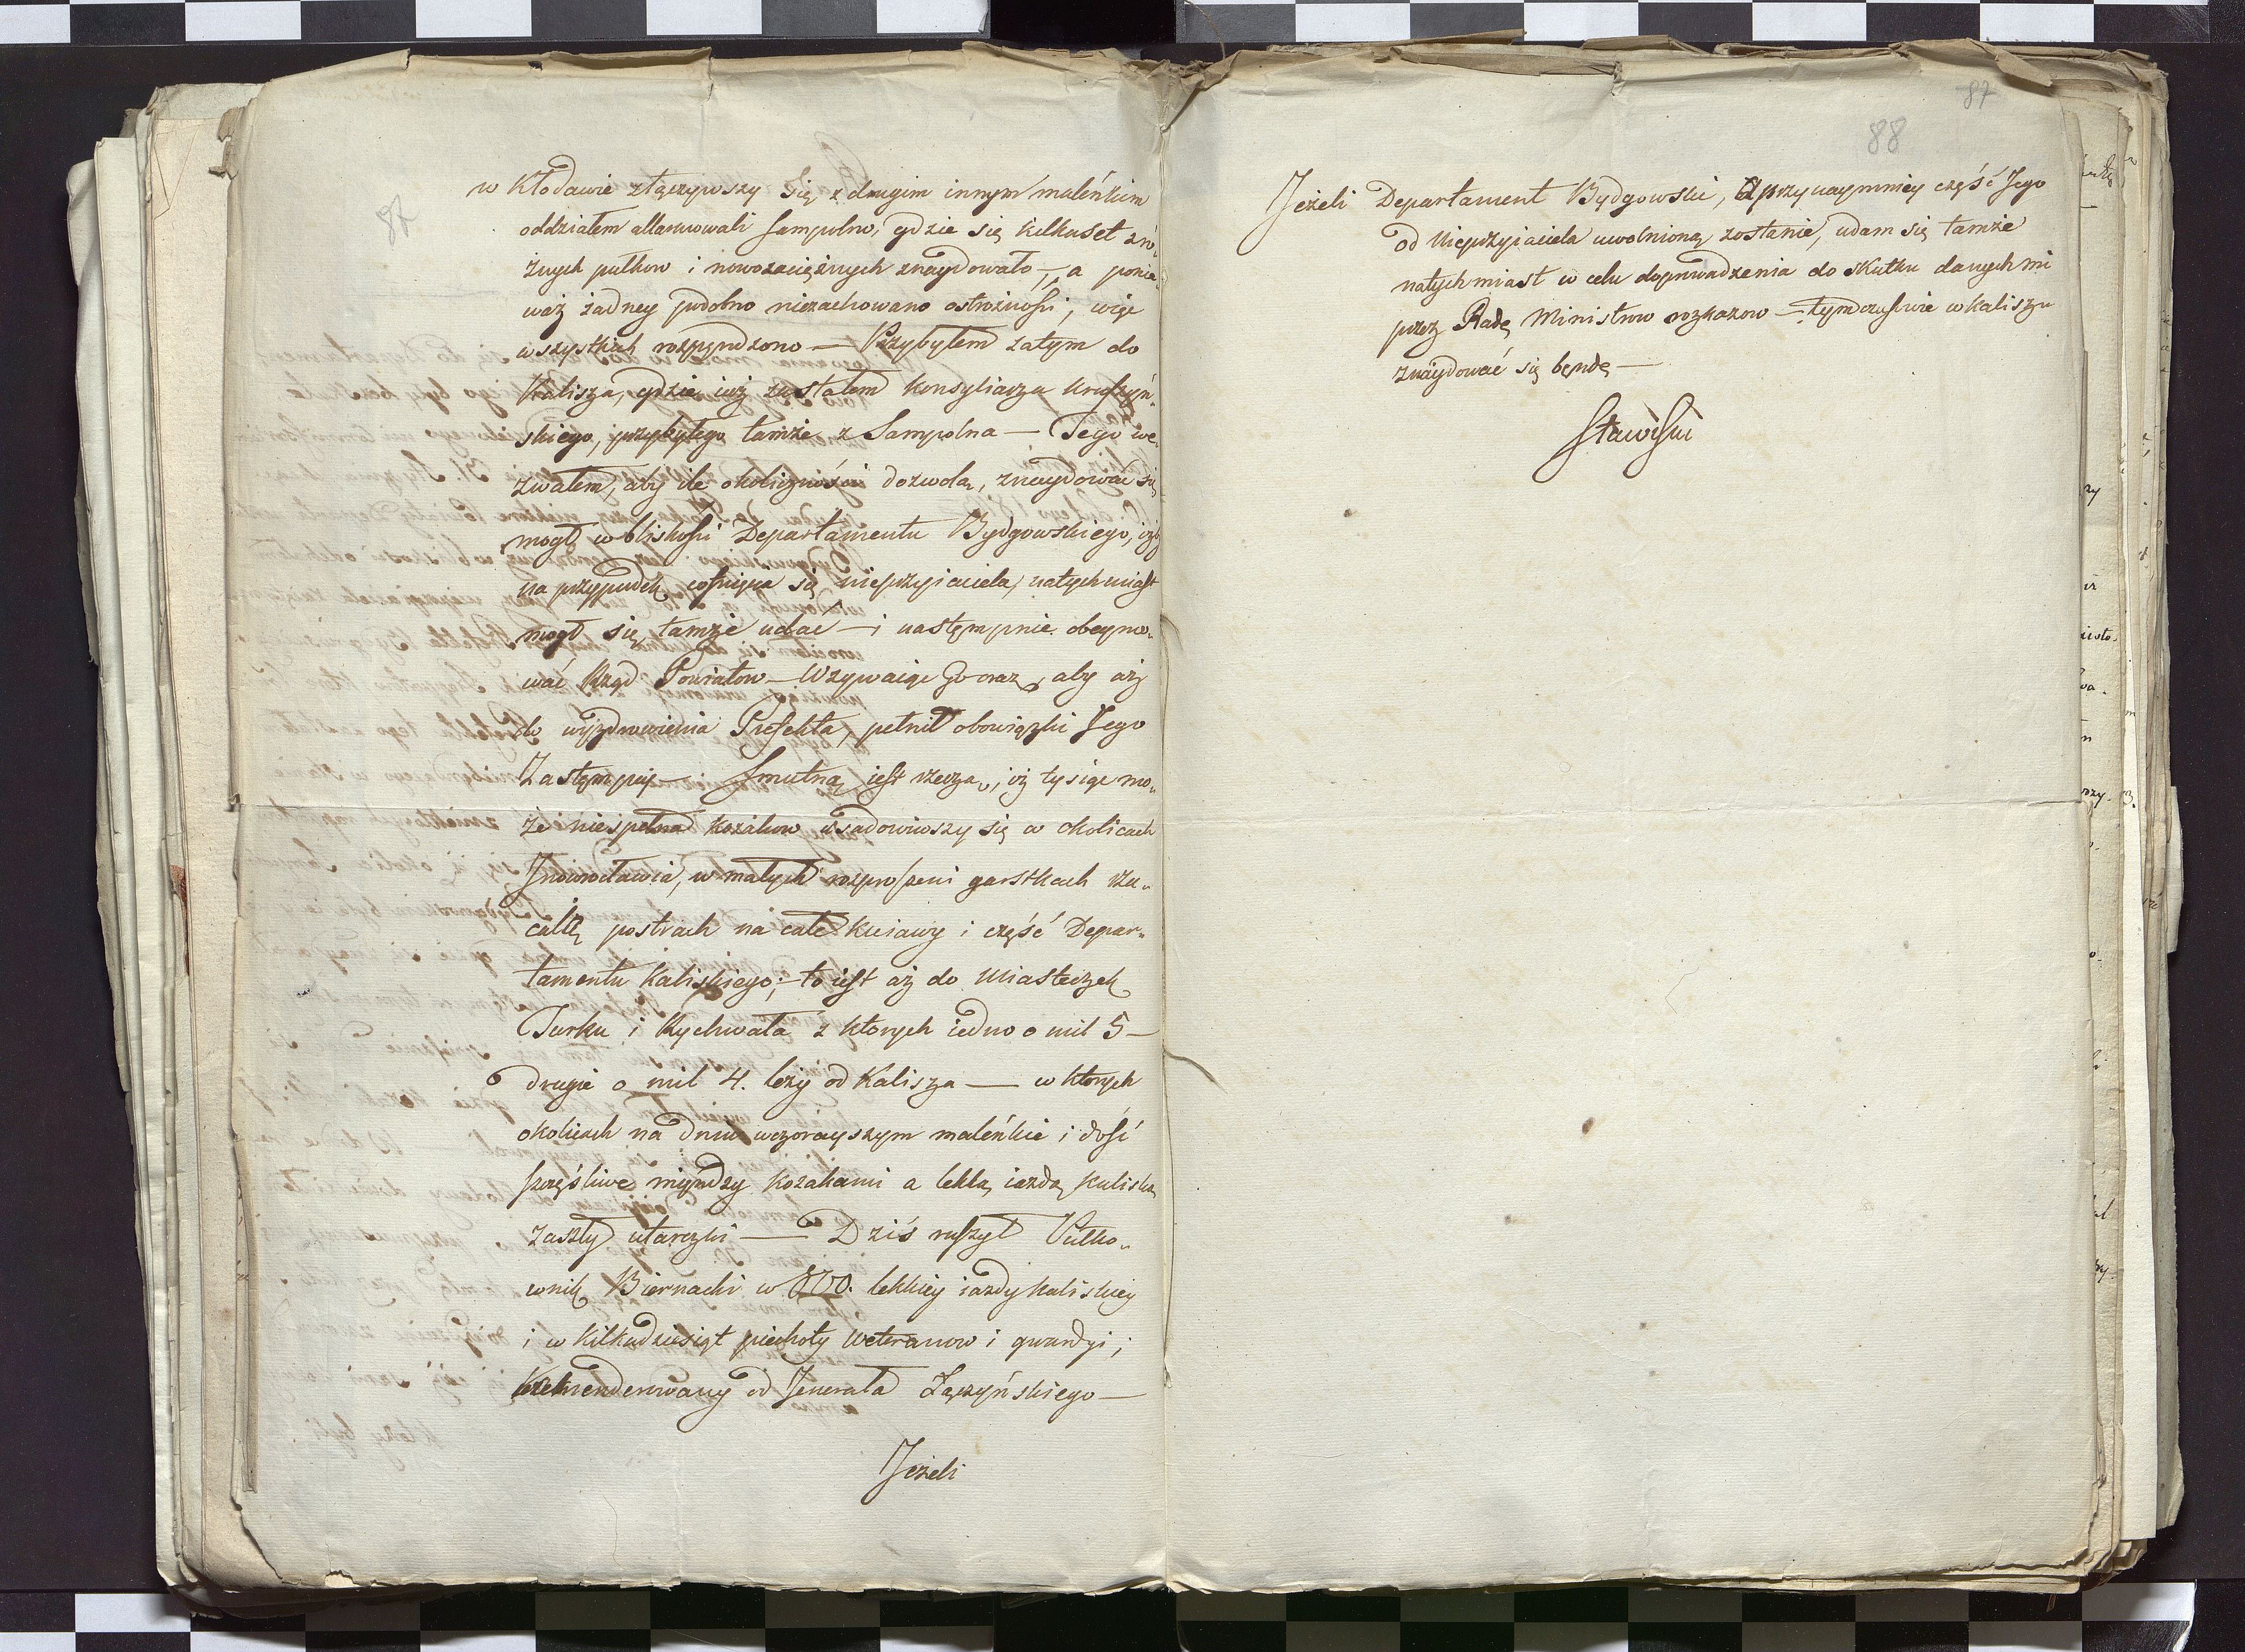 87
w Kłodawie złączywszy się z drugim innym maleńkim
oddziałem allarmowali Sampolno, gdzie się kilkuset zró„
żnych pułkow i nowozaciężnych znaydowało —, a ponie„
waż żadney podobno niezachowano ostrożności, więc
wszystkich rozpędzono — Przybyłem zatym do
Kalisza, gdzie iuż zastałem Konsyliarza Kruszyń„
skiego, przybyłego tamże z Sampolna — Tego we„
zwałem, aby ile okoliczności dozwolą, znaydować się
mogł w bliskości Departamentu Bydgowskiego, iżby
na przypadek cofnięcia się nieprzyiaciela, natychmiast
mogł się tamże udać — i następnie obeymo„
wać Rząd Powiatow — Wzywaiąc Go oraz, aby aż
do wyzdrowienia Prefekta, pełnił obowiązki Jego
Zastępcy — Smutną iest rzeczą, iż tysiąc mo„
że niespełna kozakow usadowiwszy się w okolicach
Jnowrocławia, w małych rozproszeni garstkach rzu„
calą postrach na całe Kuiawy i część Depar„
tamentu Kaliskiego; to iest aż do Miasteczek
Turku i Rychwała z ktorych iedno o mil 5 —
drugie o mil 4. leży od Kalisza — w ktorych
okolicach na dniu wczorayszym maleńkie i dość
szczęśliwe między kozakami a lekką iazdą kaliską
zaszły utarczki — Dziś ruszył Pułko„
wnik Biernacki w 800. lekkiey iazdy kaliskiey
i w kilkadziesiąt piechoty weteranow i gwardyi;
kommenderowany od Jenerała Łączyńskiego —
Jeżeli
87
88
Jeżeli Departament Bydgowski, a przynaymniey część Jego
od Nieprzyiaciela uwolnioną zostanie, udam się tamże
natychmiast w celu doprowadzenia do skutku danych mi
przez Radę Ministrow rozkazow — tymczasowie w Kaliszu
znaydować się będę —
Stawiski